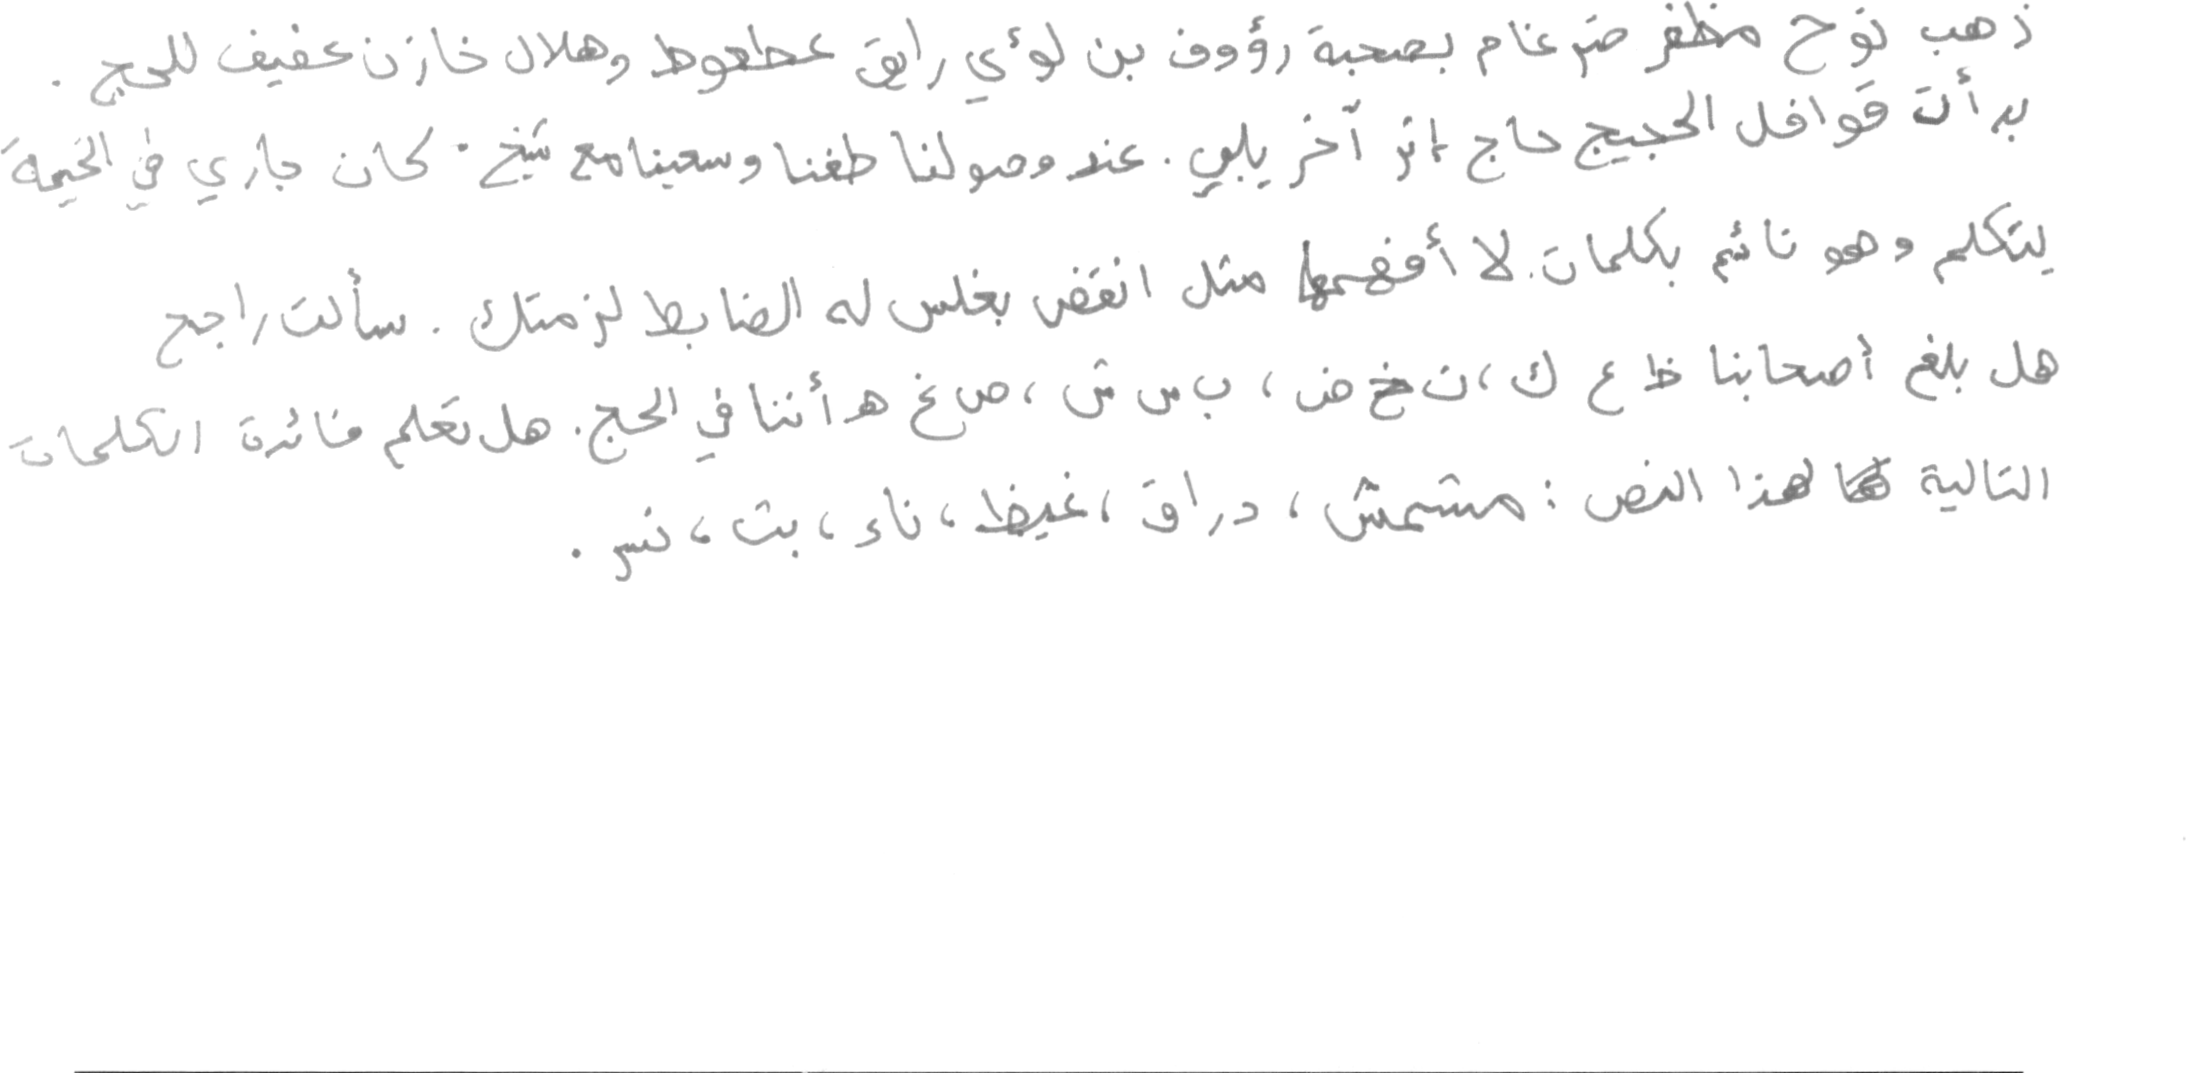 ذهب نوح مظفر ضرغام بصحبة رؤوف بن لؤي رايق عطعوط وهلال خازن عفيف للحج .
بدأت قوافل الحجيج حاج إثر آخر يلبي . عند وصولنا طفنا وسعينا مع شيخ . كان جاري في الخيمة
يتكلم وهو نائم بكلمات لا أفهمها مثل انقض بغلس له الضابط لزمتك . سألت راجح
هل بلغ أصحابنا ظ ع ك ، ن خ ض ، ب س ش ، ص غ هـ أننا في الحج . هل تعلم فائدة الكلمات
التالية لهذا النص : مشمش ، دراق ، غيظ ، ناء ، بث ، نسر .